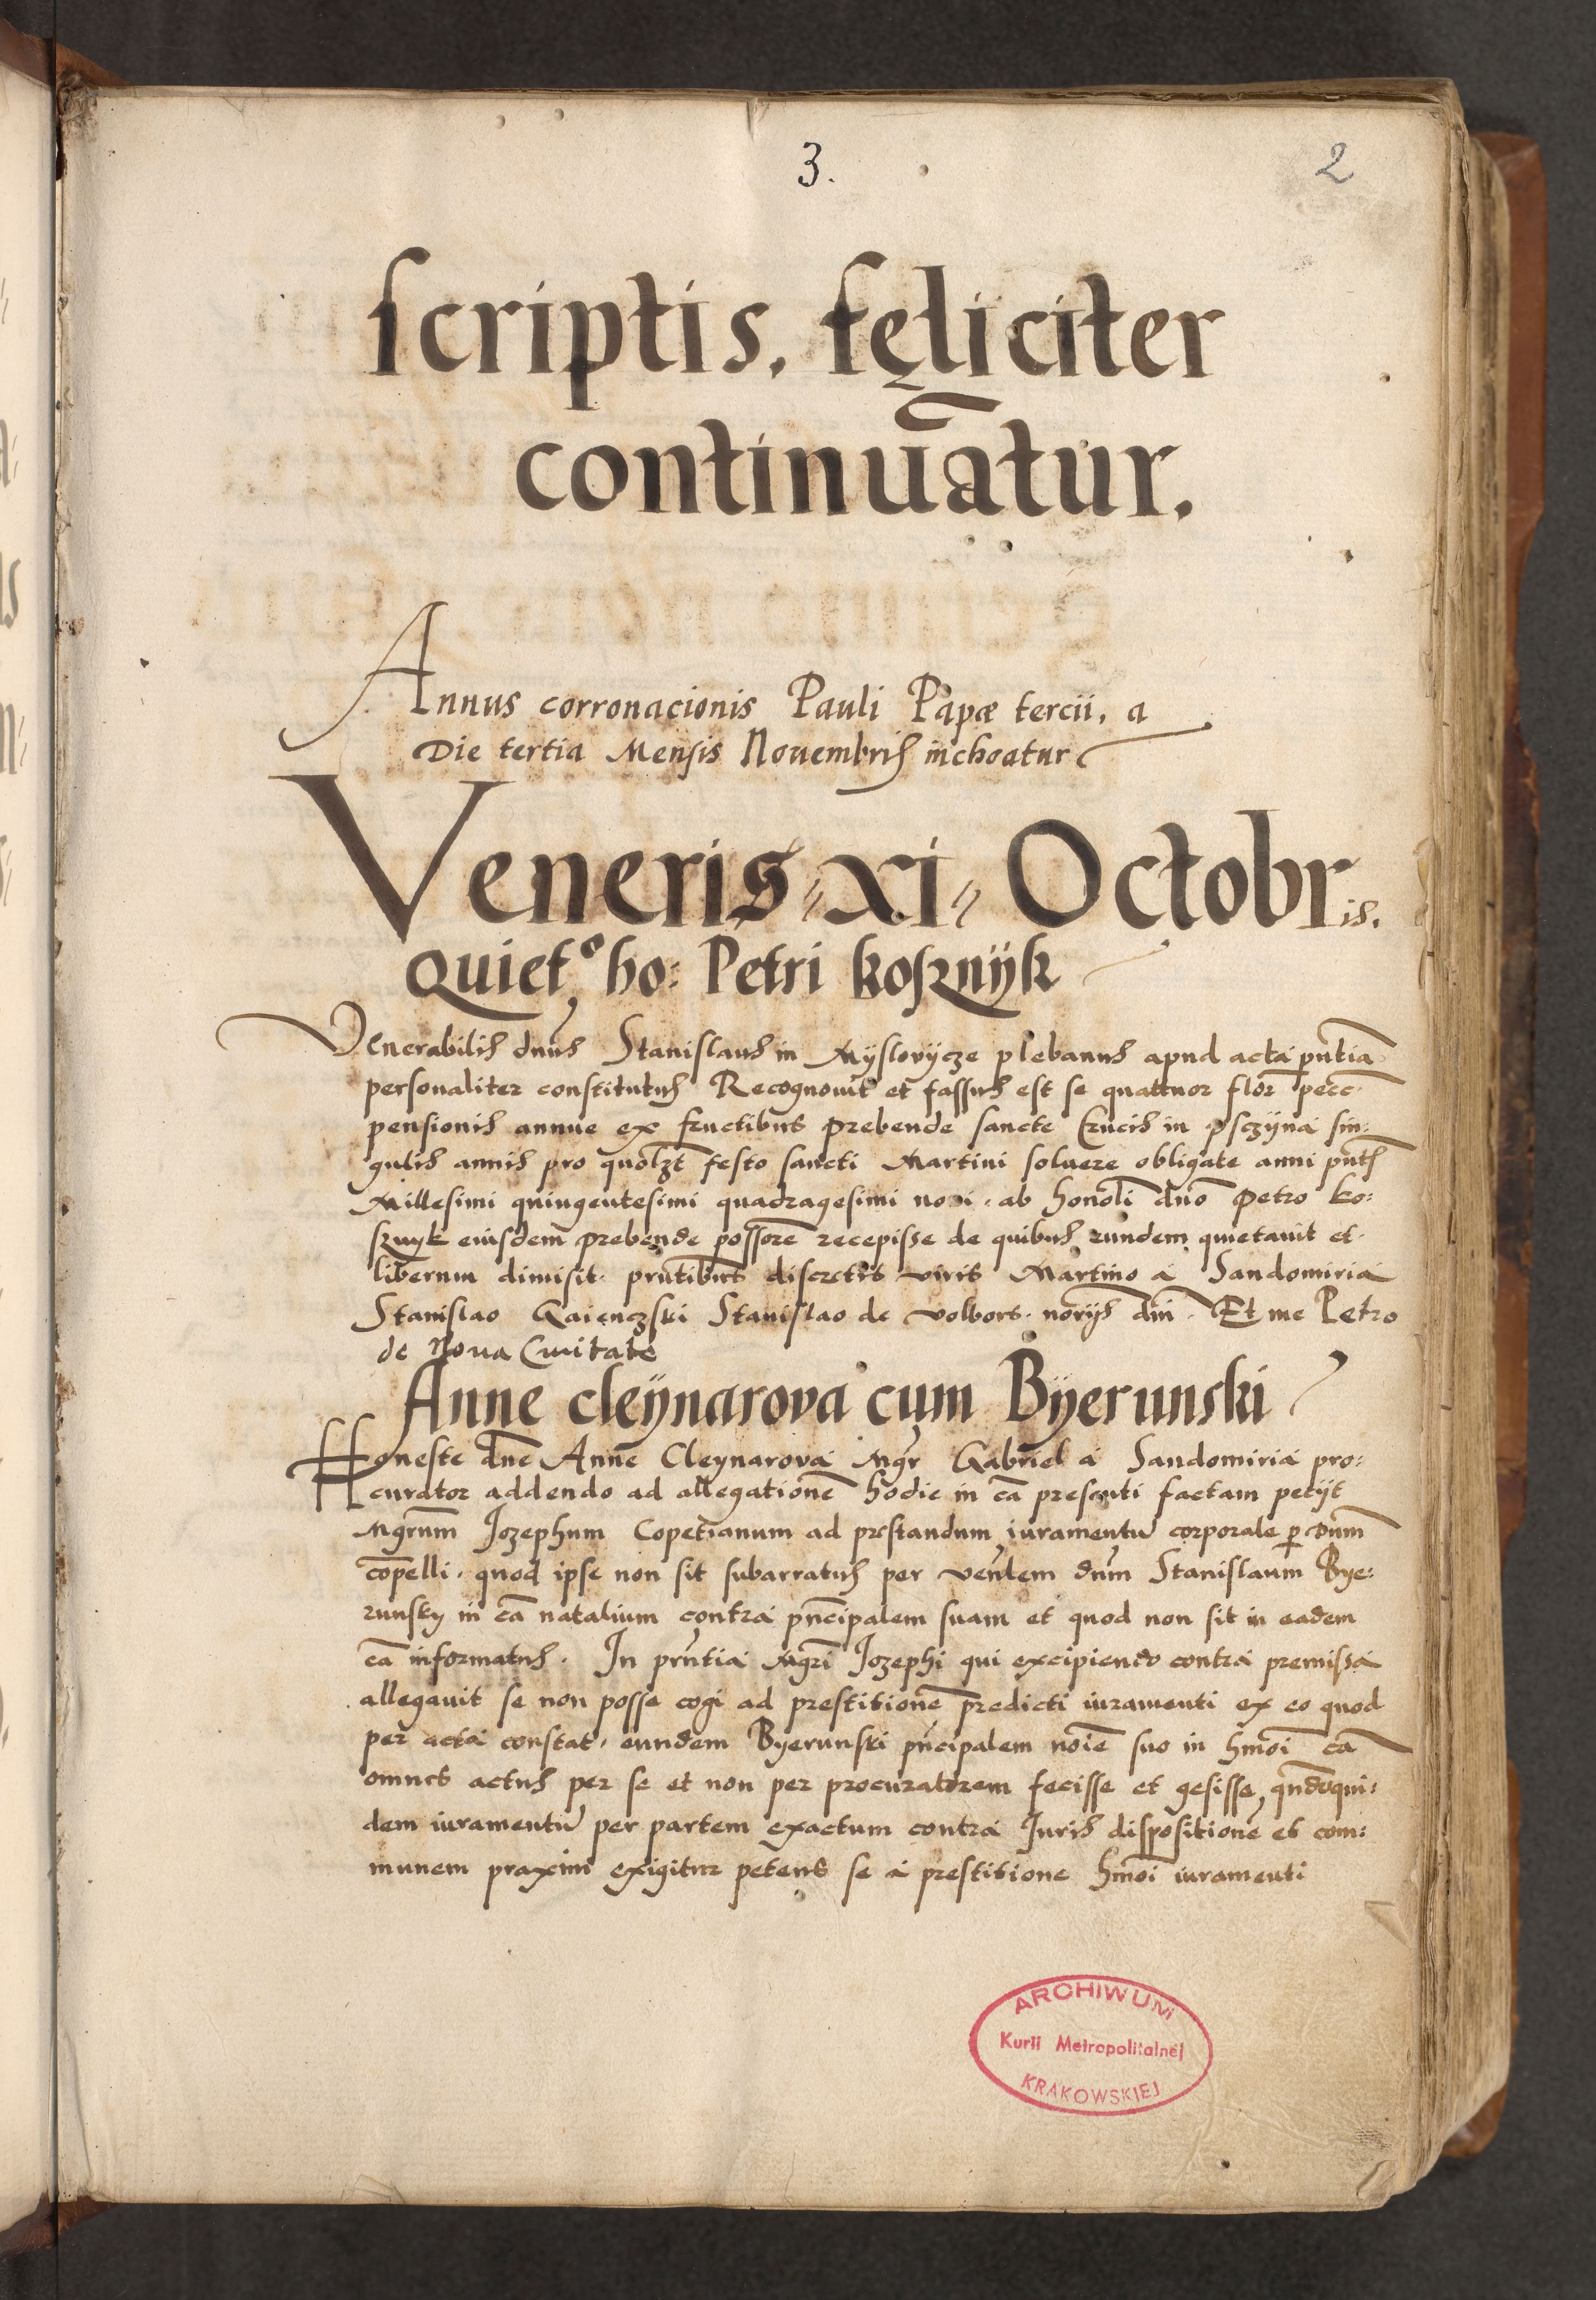 3.
2
scriptis, fęliciter
continua̅tur.
Annus corronacionis Pauli Papæ tercii, a
Die tertia Mensis Novembris inchoatur
Veneris xi Octobris.
Quiet⁰ ho: Petri kosznÿk
Venerabilis dnūs Stanislaus in Mÿslovÿcze plebanus apud acta pn̄tia
personaliter constitutus Recognovit et fassus est se quattuor flor̄ pecc̄
pensionis annue ex fructibus prebende sancte Crucis in psczÿna sin:
gulis annis pro quolzt festo sancti Martini solvere obligate anni pn̄tis
Millesimi quingentesimi quadragesimi noni ab honoli dn̄o Petro ko:
sznyk eiusdem prebende possorē recepisse de quibus eundem quietavit et
liberum dimisit. pn̄tibus discretis viris Martino a Sandomiria
Stanislao Gaienczski Stanislao de volbors. norijs din̄. Et me Petro
de Nova Civitate
Anne cleÿnarova cum Bÿerunski
Honeste dn̄e Anne Cleynarova Mgr̄ Gabriel a Sandomiria pro:
curator addendo ad allegationē hodie in cā presenti factam petijt
Mgrūm Jozephum Copetianum ad prestandum iuramentū corporale p dnūm
cōpelli. quod ipse non sit subarratus per venlem dnm̄ Stanislaum Bye:
runsky in cā natalium contra pn̄cipalem suam et quod non sit in eadem
cā informatus. In pn̄tia Mgrī Jozephi qui excipiendo contra premissa
allegavit se non posse cogi ad prestitionē predicti iuramenti ex eo quod
per acta constat, eundem Byerunski pn̄cipalem noīe suo in hmōi cā
omnes actus per se et non per procuratorem fecisse et gesisse, qn̄doqui:
dem iuramentū per partem exactum contra Juris dispositionē et com:
munem praxim exigitur petens se a prestitione hmōi iuramenti
ARCHIWUM
Kurii Metropolitalnej
KRAKOWSKIEJ